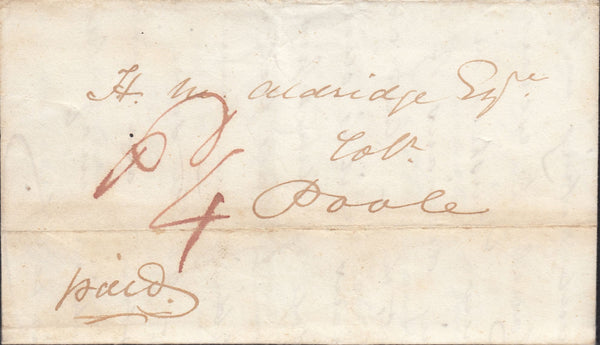 H. M. Aldridge Esqre.
Solr.
P 4
Poole
paid.